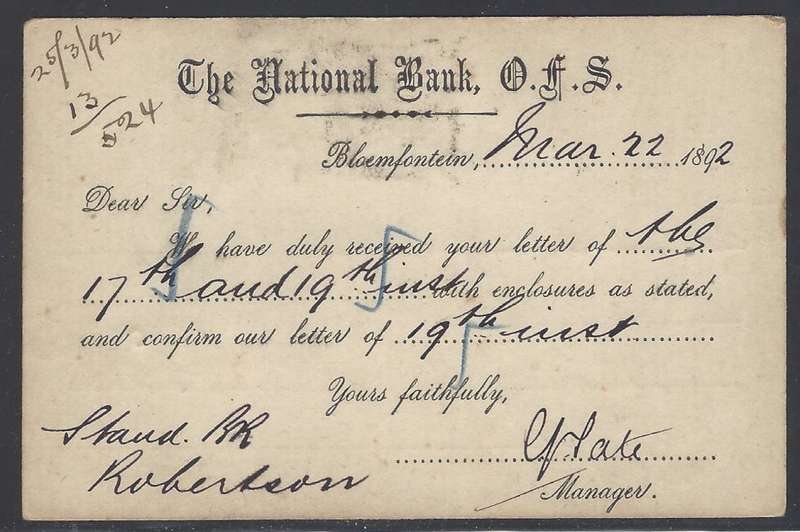 25/3/92
13/524
The National Bank, O.F.S.
Bloemfontein, Mar. 22 1892
Dear Sir,
We have duly received your letter of the
17th and 19th inst with enclosures as stated,
and confirm our letter of 19th inst
Yours faithfully,
Stand. BK
Robertson
Manager.